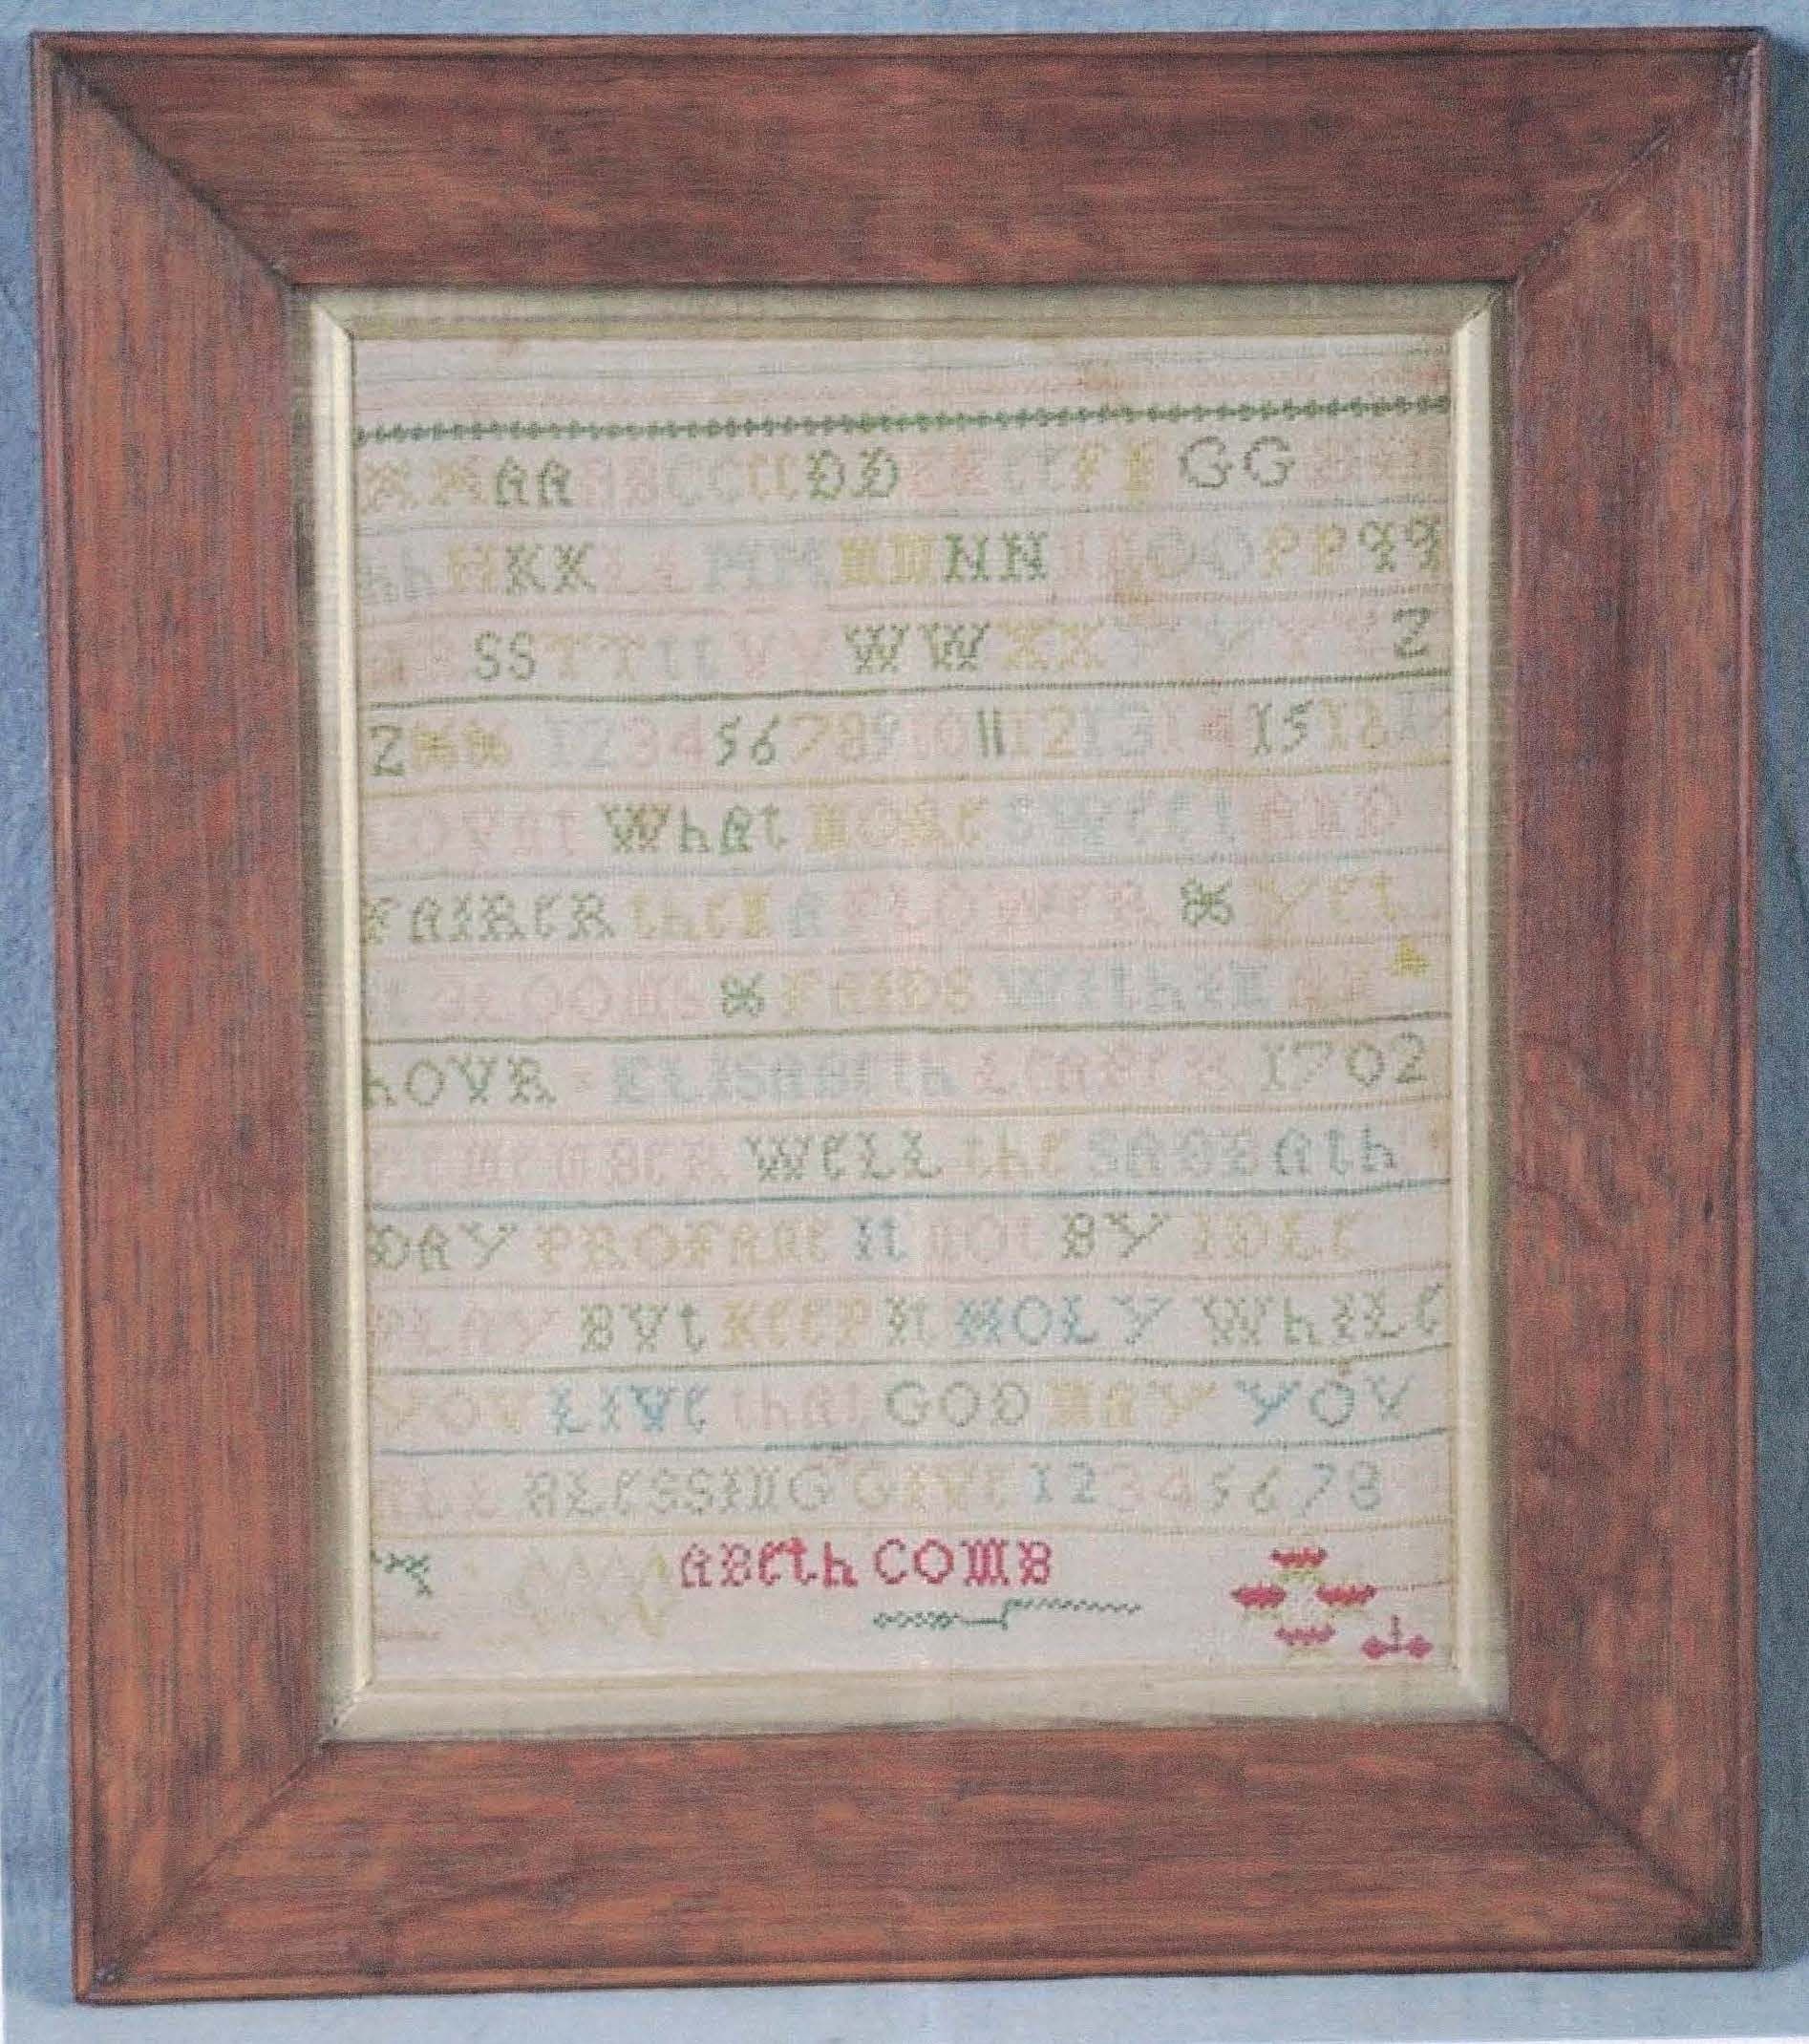 AA BBCCCCDD EE FF GG
hhHKKLLMMMMNN OOPPqq
SSTTttVVWWXXYY Z
Z&& 1 2 3 4 5 6 7 8 9 10 11 12 13 14 15 16
What MORe SWeet AnD
FAIReR then A FLOWeR & Yet
BLOOMs & FAIDS WIthIn An
hOVR ELISABeth 1702
ReMeMBeR WeLL the SABBAth
DAY PROFAne It nOt BY IDLe
PLAY BVt KeeP It HOLY WhILe
YOV LIVe thAt GOD MAY YOV
ALL BLeSSInG GIVe 1 2 3 4 5 6 7 8
ABeth COMB